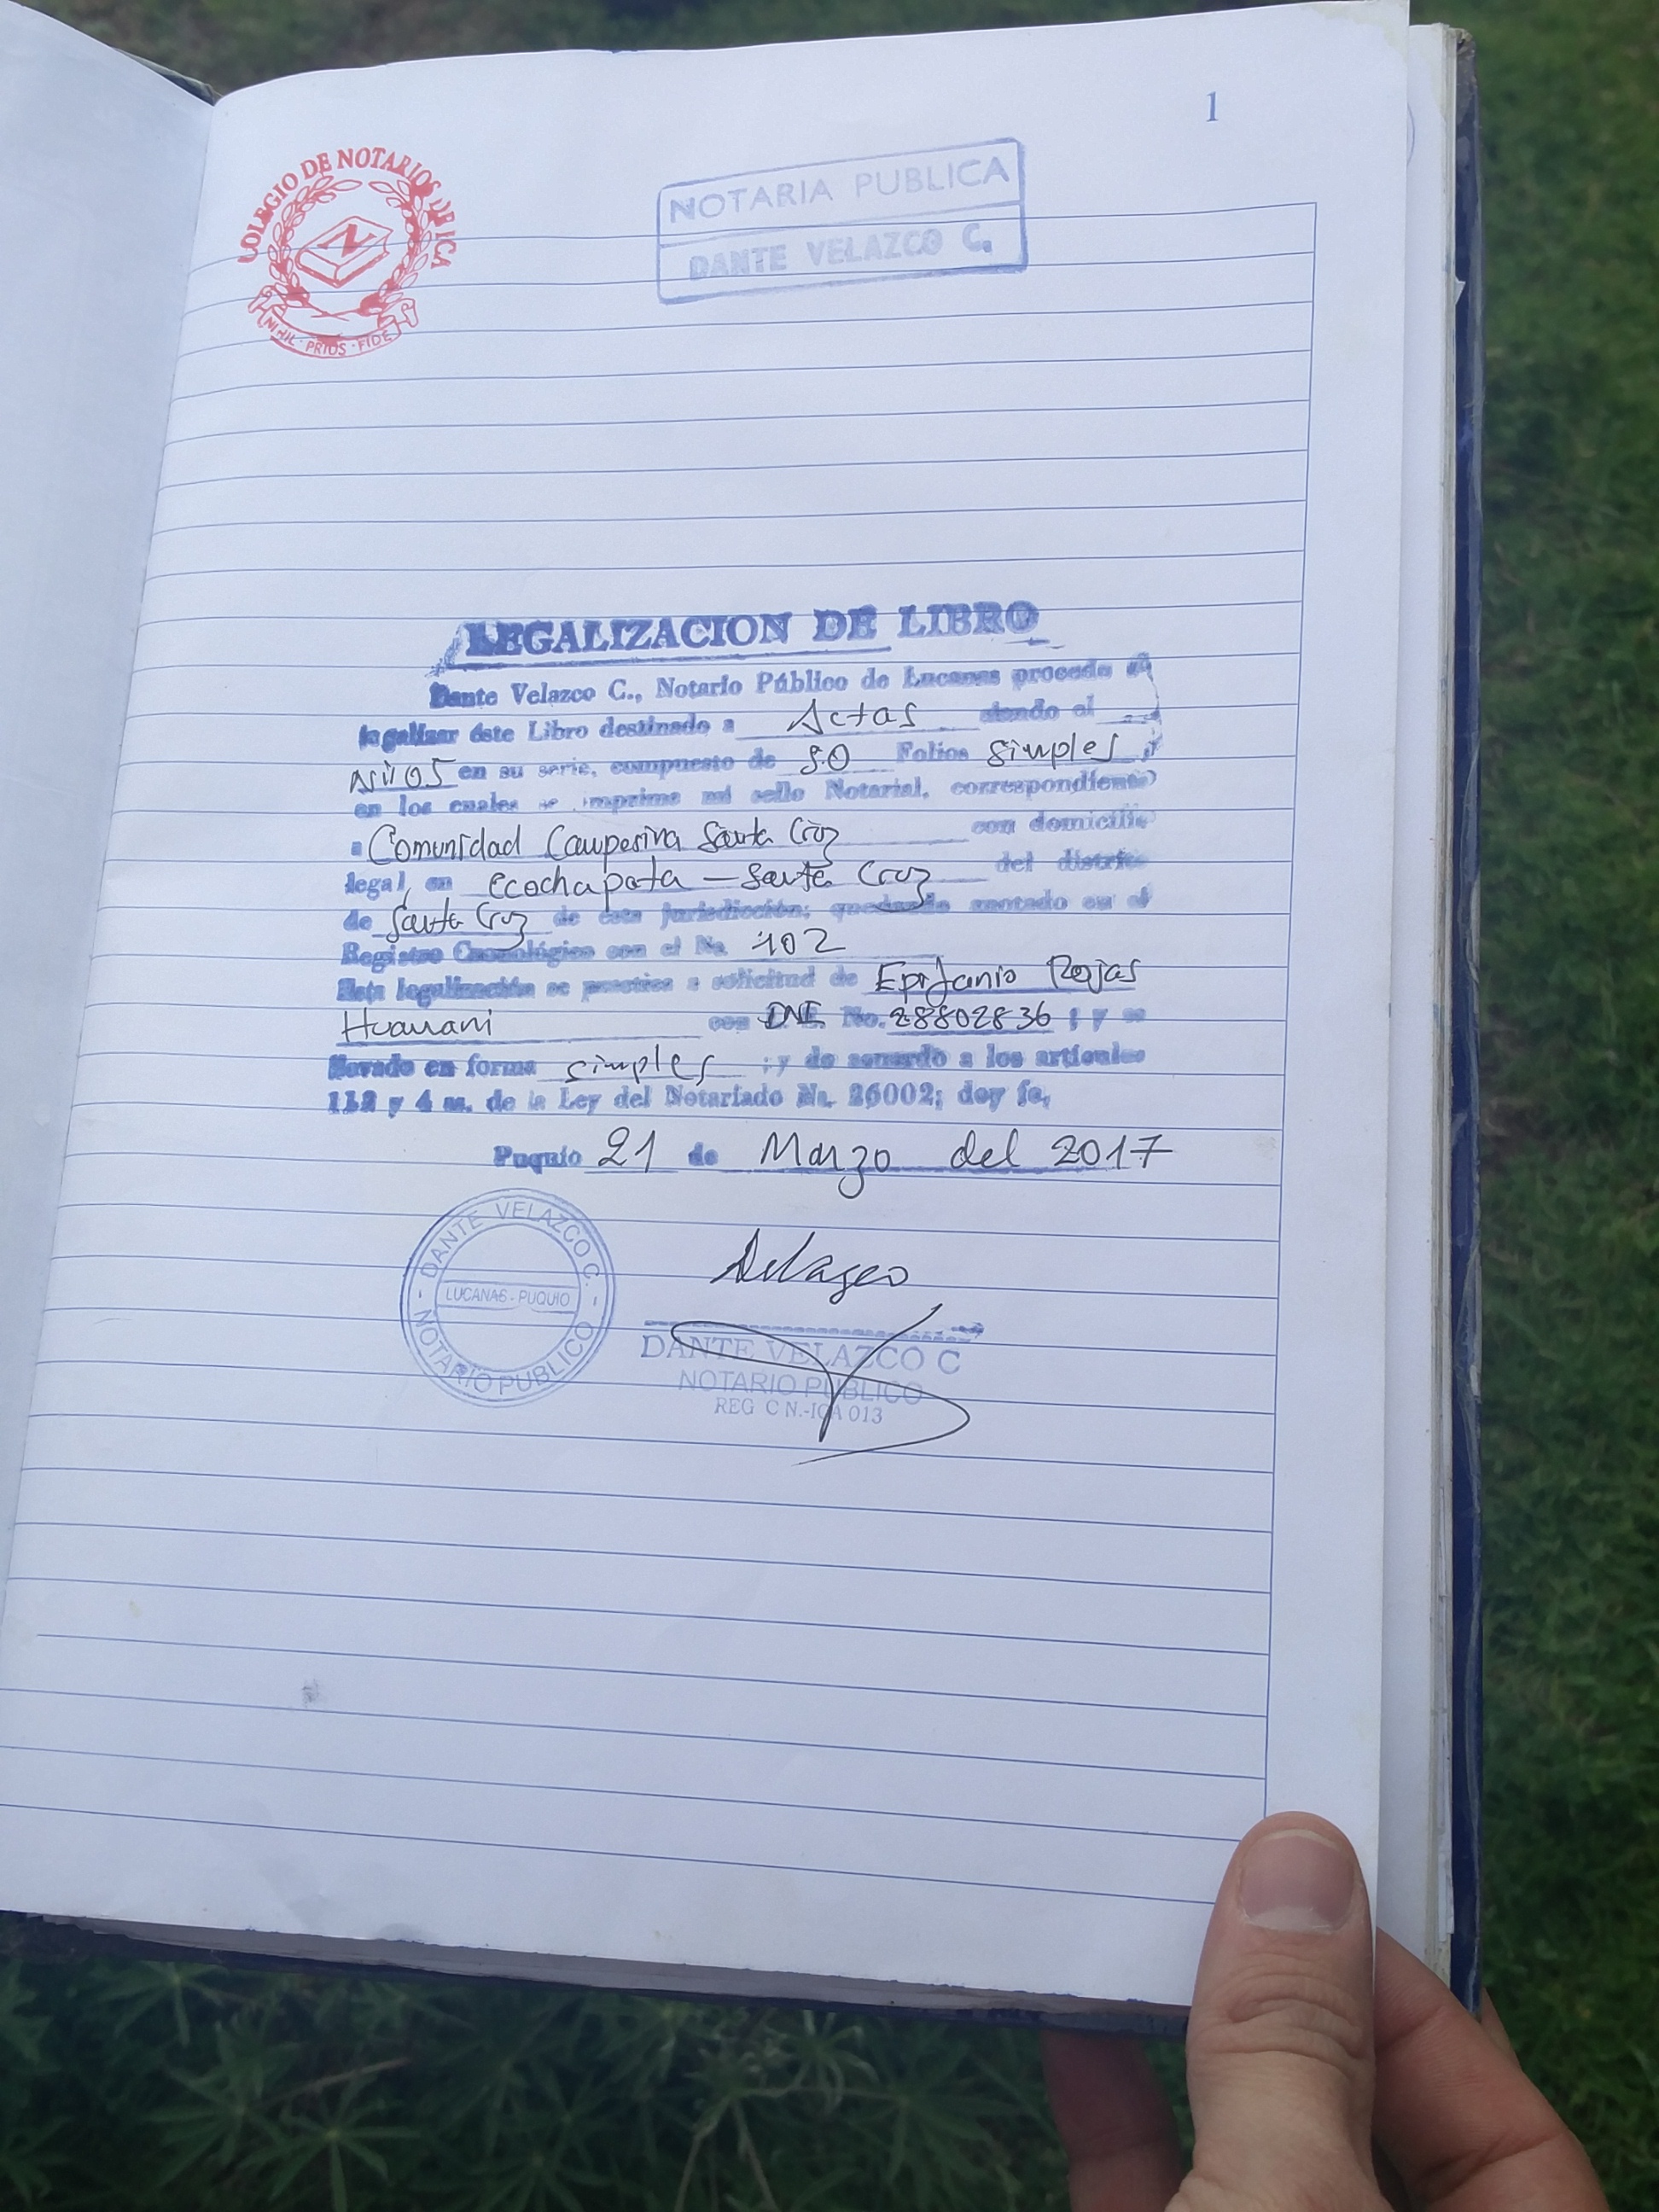 1
COLEGIO DE NOTARIOS DE ICA
NIHIL · PRIUS · FIDE
NOTARIA PUBLICA
DANTE VELAZCO C.
LEGALIZACION DE LIBRO
Dante Velazco C., Notario Público de Lucanas procedo a
legalizar éste Libro destinado a Actas siendo el
05 en su serie, compuesto de Folios simples
en los cuales se imprime mi sello Notarial, correspondiente
a Comunidad Campesina Santa Cruz con domicilio
legal, en ccochapata - Santa Cruz del distrito
de Santa Cruz de esta jurisdicción; quedando anotado en el
Registro Cronológico con el No. 102
Esta legalización se practica a solicitud de Epifanio Rojas
Huamani con DNI No. 28802836 ; y es
llevado en forma simples ; y de acuerdo a los artículos
112 y 4 ss. de la Ley del Notariado No. 26002; doy fe,
Puquio 21 de Marzo del 2017
DANTE VELAZCO C.
LUCANAS - PUQUIO
NOTARIO PUBLICO
DANTE VELAZCO C
NOTARIO PUBLICO
REG C N.-ICA 013